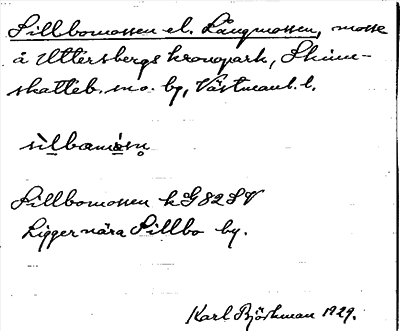 Sillbomossen el. Långmossen, mosse
å Uttersbergs kronopark, Skinn-
skatteb. sn o. by, Västmanl. l.
sìlbamòsn̥
Sillbomossen kG 82 SV
Ligger nära Sillbo by.
Karl Björkman 1929.